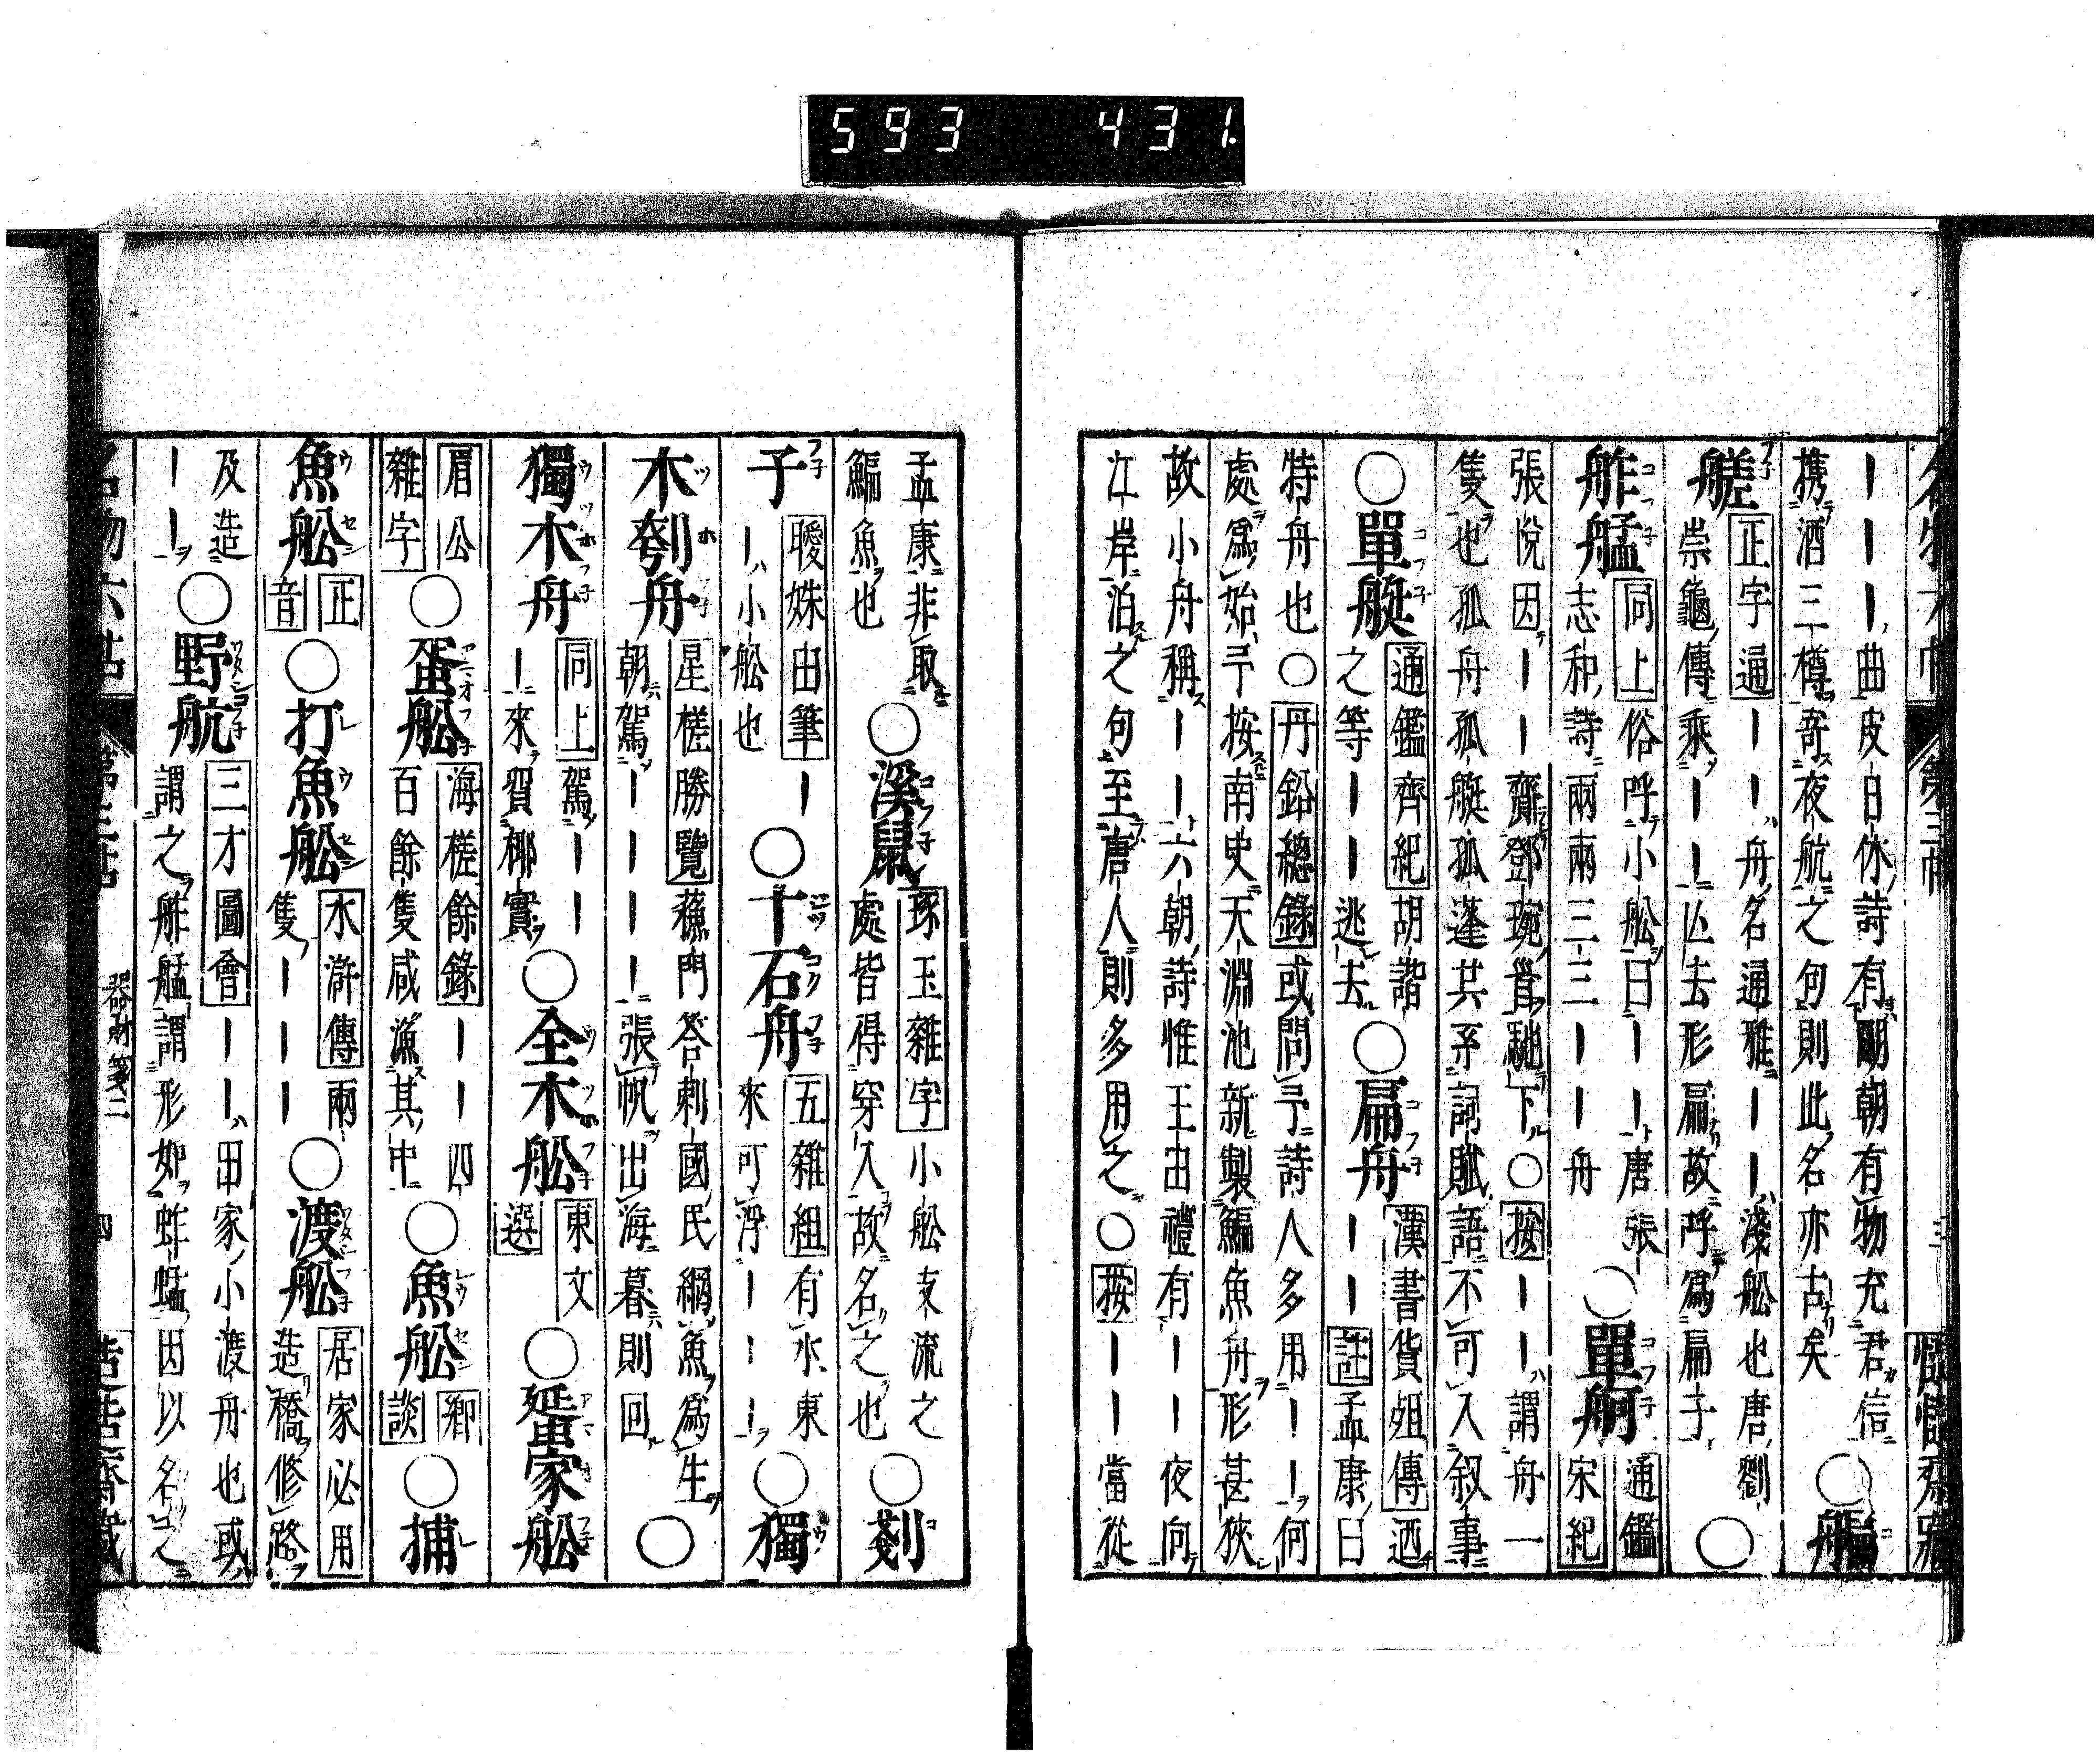 593 431.
名物六帖 第三帖 三
｜｜｜曲皮日休詩有明朝有物充君信
携酒三樽寄夜航之句則此名亦古矣 ○艑
艖 正字通｜｜舟名通雅｜｜淺船也唐劉
崇龜傳乘｜｜亾去形扁故呼爲扁子 ○
舴艋 同上俗呼小船曰｜｜唐張
志和詩兩兩三三｜｜舟 ○單舸 通鑑宋紀
張悅因｜｜齎鄧琬首馳下○按｜｜謂舟一
隻也孤舟孤艇孤蓬其系詞賦語不可入叙事
○單艇 通鑑齊紀胡諧之等｜｜逃去 ○扁舟 漢書貨殂傳迺｜｜註孟康曰
特舟也○丹鉛總錄或問予詩人多用｜｜何
處爲始予按南史天淵池新製鯿魚舟形甚狹
故小舟稱｜｜六朝詩惟王由禮有｜｜夜向
江岸泊之句至唐人則多用之○按｜｜當從
孟康非取
鯿魚也 ○溪鼠 琢玉雜字小船支流之
處皆得穿入故名之也 ○剡
子 曖姝由筆｜
｜小船也 ○十石舟 五雜組有水東
來可浮｜｜｜ ○獨
木刳舟 星槎勝覽蘓門答剌國民網魚爲生
朝駕｜｜｜｜張帆出海暮則回 ○
獨木舟 同上駕｜｜｜
｜來賀椰實 ○全木船 東文選 ○蜑家船
眉公雜字 ○蛋船 海槎餘錄｜｜四
百餘隻咸漁其中 ○魚船 鄉談 ○捕
魚船 正音 ○打魚船 水滸傳兩
隻｜｜｜ ○渡船 居家必用
造橋修路
及造
｜｜ ○野航 三才圖會｜｜田家小渡舟也或
謂之舴艋謂形如蚱蜢因以名之
器財箋二 四